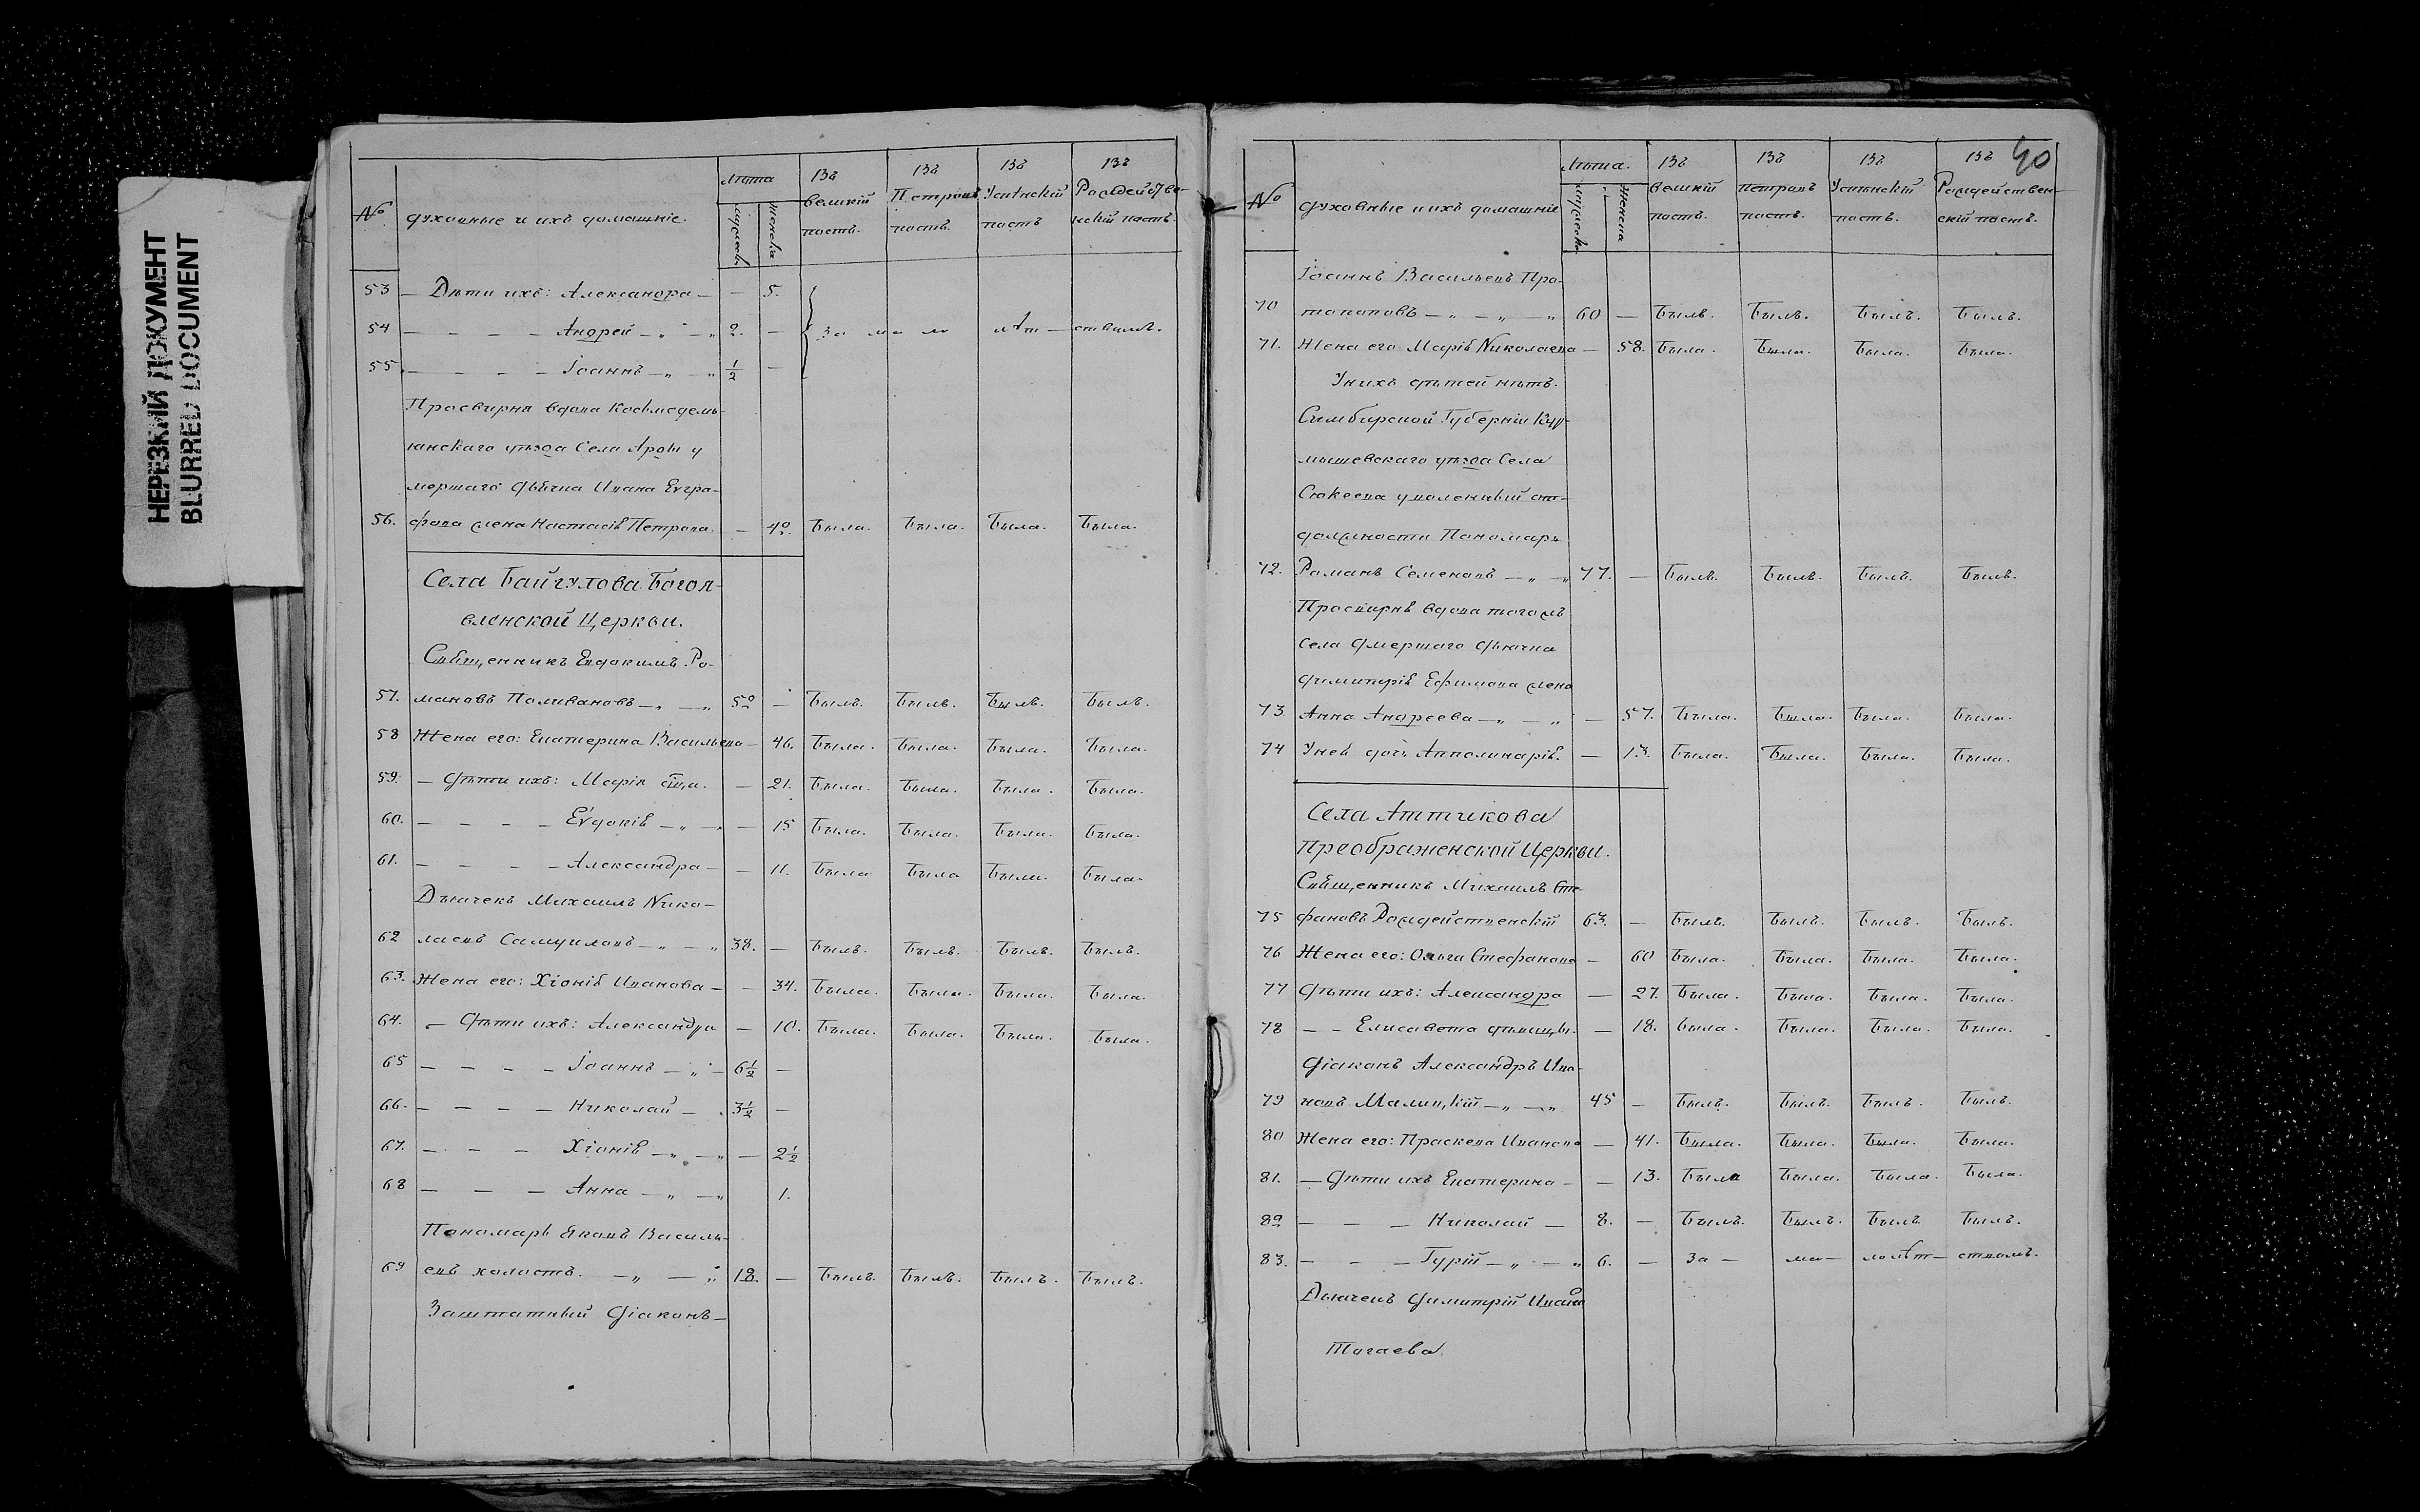 НЕРЕЗКИЙ ДОКУМЕНТ
BLURRED DOCUMENT
№ духовные и ихъ домашніе. Лѣта мужеска женска Въ великій постъ. Въ Петровъ постъ. Въ Успѣнскій постъ Въ Рождестве-нскій постъ.
53 — Дѣти ихъ: Александра — — 5.
54 — — — — Андрей — „ — „ 2. — За ма ло лѣт — ствомъ.
55. — — — — Іоаннъ — „ — „ ½ —
Просвирня вдова Козмодемь-
янскаго уѣзда Села Арды у
мершаго дьячка Ивана Евгра-
56. фова жена Настасія Петрова. — 40. Была. Была. Была. Была.
Села Байгулова Богоя-
вленской Церкви.
Священникъ Евдокимъ Ро-
57. мановъ Поливановъ — „ — „ 50 — Былъ. Былъ. Былъ. Былъ.
58 Жена его: Екатерина Васильева — 46. Была. Была. Была. Была.
59. — Дѣти ихъ: Марія — 21. Была. Была. Была. Была.
60. — — — — Евдокія — „ — „ — 15 Была. Была. Была. Была.
61. — — — — Александра — — 11. Была Была Была. Была.
Дьячекъ Михаилъ Нико-
62 лаевъ Самуиловъ — „ — „ 38. — Былъ. Былъ. Былъ. Былъ.
63. Жена его: Хіонія Иванова — — 34. Была. Была. Была. Была.
64. — Дѣти ихъ: Александра — 10. Была. Была. Была. Была.
65 — — — — Іоаннъ — „ — 6½ —
66. — — — — Николай — 3½ —
67. — — — Хіонія — „ — „ — 2½
68 — — — Анна — „ — „ 1.
Пономарь Яковъ Василь-
69 евъ холостъ. — „ — „ 18. — Былъ. Былъ. Былъ. Былъ.
Заштатный Діаконъ —
40
№ духовные и ихъ домашніе Лѣта. мужеска женска Въ великій постъ. Въ петровъ постъ. Въ Успѣнскій постъ. Въ Рождествен-скій постъ.
Іоаннъ Васильевъ Про-
70 топоповъ — „ — „ — „ 60 — Былъ. Былъ. Былъ. Былъ.
71. Жена его Марія Николаева — 58. Была. Была. Была. Была.
У нихъ дѣтей нѣтъ.
Симбирской Губерніи Кур-
мышевскаго уѣзда Села
уволенный отъ
должности Пономарь
72. Романъ Семеновъ — „ — „ 77. — Былъ. Былъ. Былъ. Былъ.
Просвирня вдова тогожъ
села умершаго дьячка
Димитрія Ефимова жена
73 Анна Андреева — „ — „ — 57. Была. Была. Была. Была.
74 У ней дочь Апполинарія. — 13. Была. Была. Была. Была.
Села Аттикова
Преображенской Церкви.
Священникъ Михаилъ Сте-
75 фановъ Рождественскій 63. — Былъ. Былъ. Былъ. Былъ.
76 Жена его: Ольга Стефанова — 60 Была. Была. Была. Была.
77 Дѣти ихъ: Александра — 27. Была. Была. Была. Была.
78 — — Елисавета дѣвицы. — 18. Была. Была. Была. Была.
Діаконъ Александръ Ива-
79 новъ Малицкій — „ — „ 45 — Былъ. Былъ. Былъ. Былъ.
80 Жена его: Праскева Иванова — 41. Была. Была. Была. Была.
81. — Дѣти ихъ Екатерина — — 13. Была Была. Была. Была.
82 — — — Николай — 8. — Былъ. Былъ. Былъ Былъ.
83. — — — Гурій — „ — „ 6. — За — ма — лолѣт — ствомъ.
Дьячекъ Димитрій Иванов